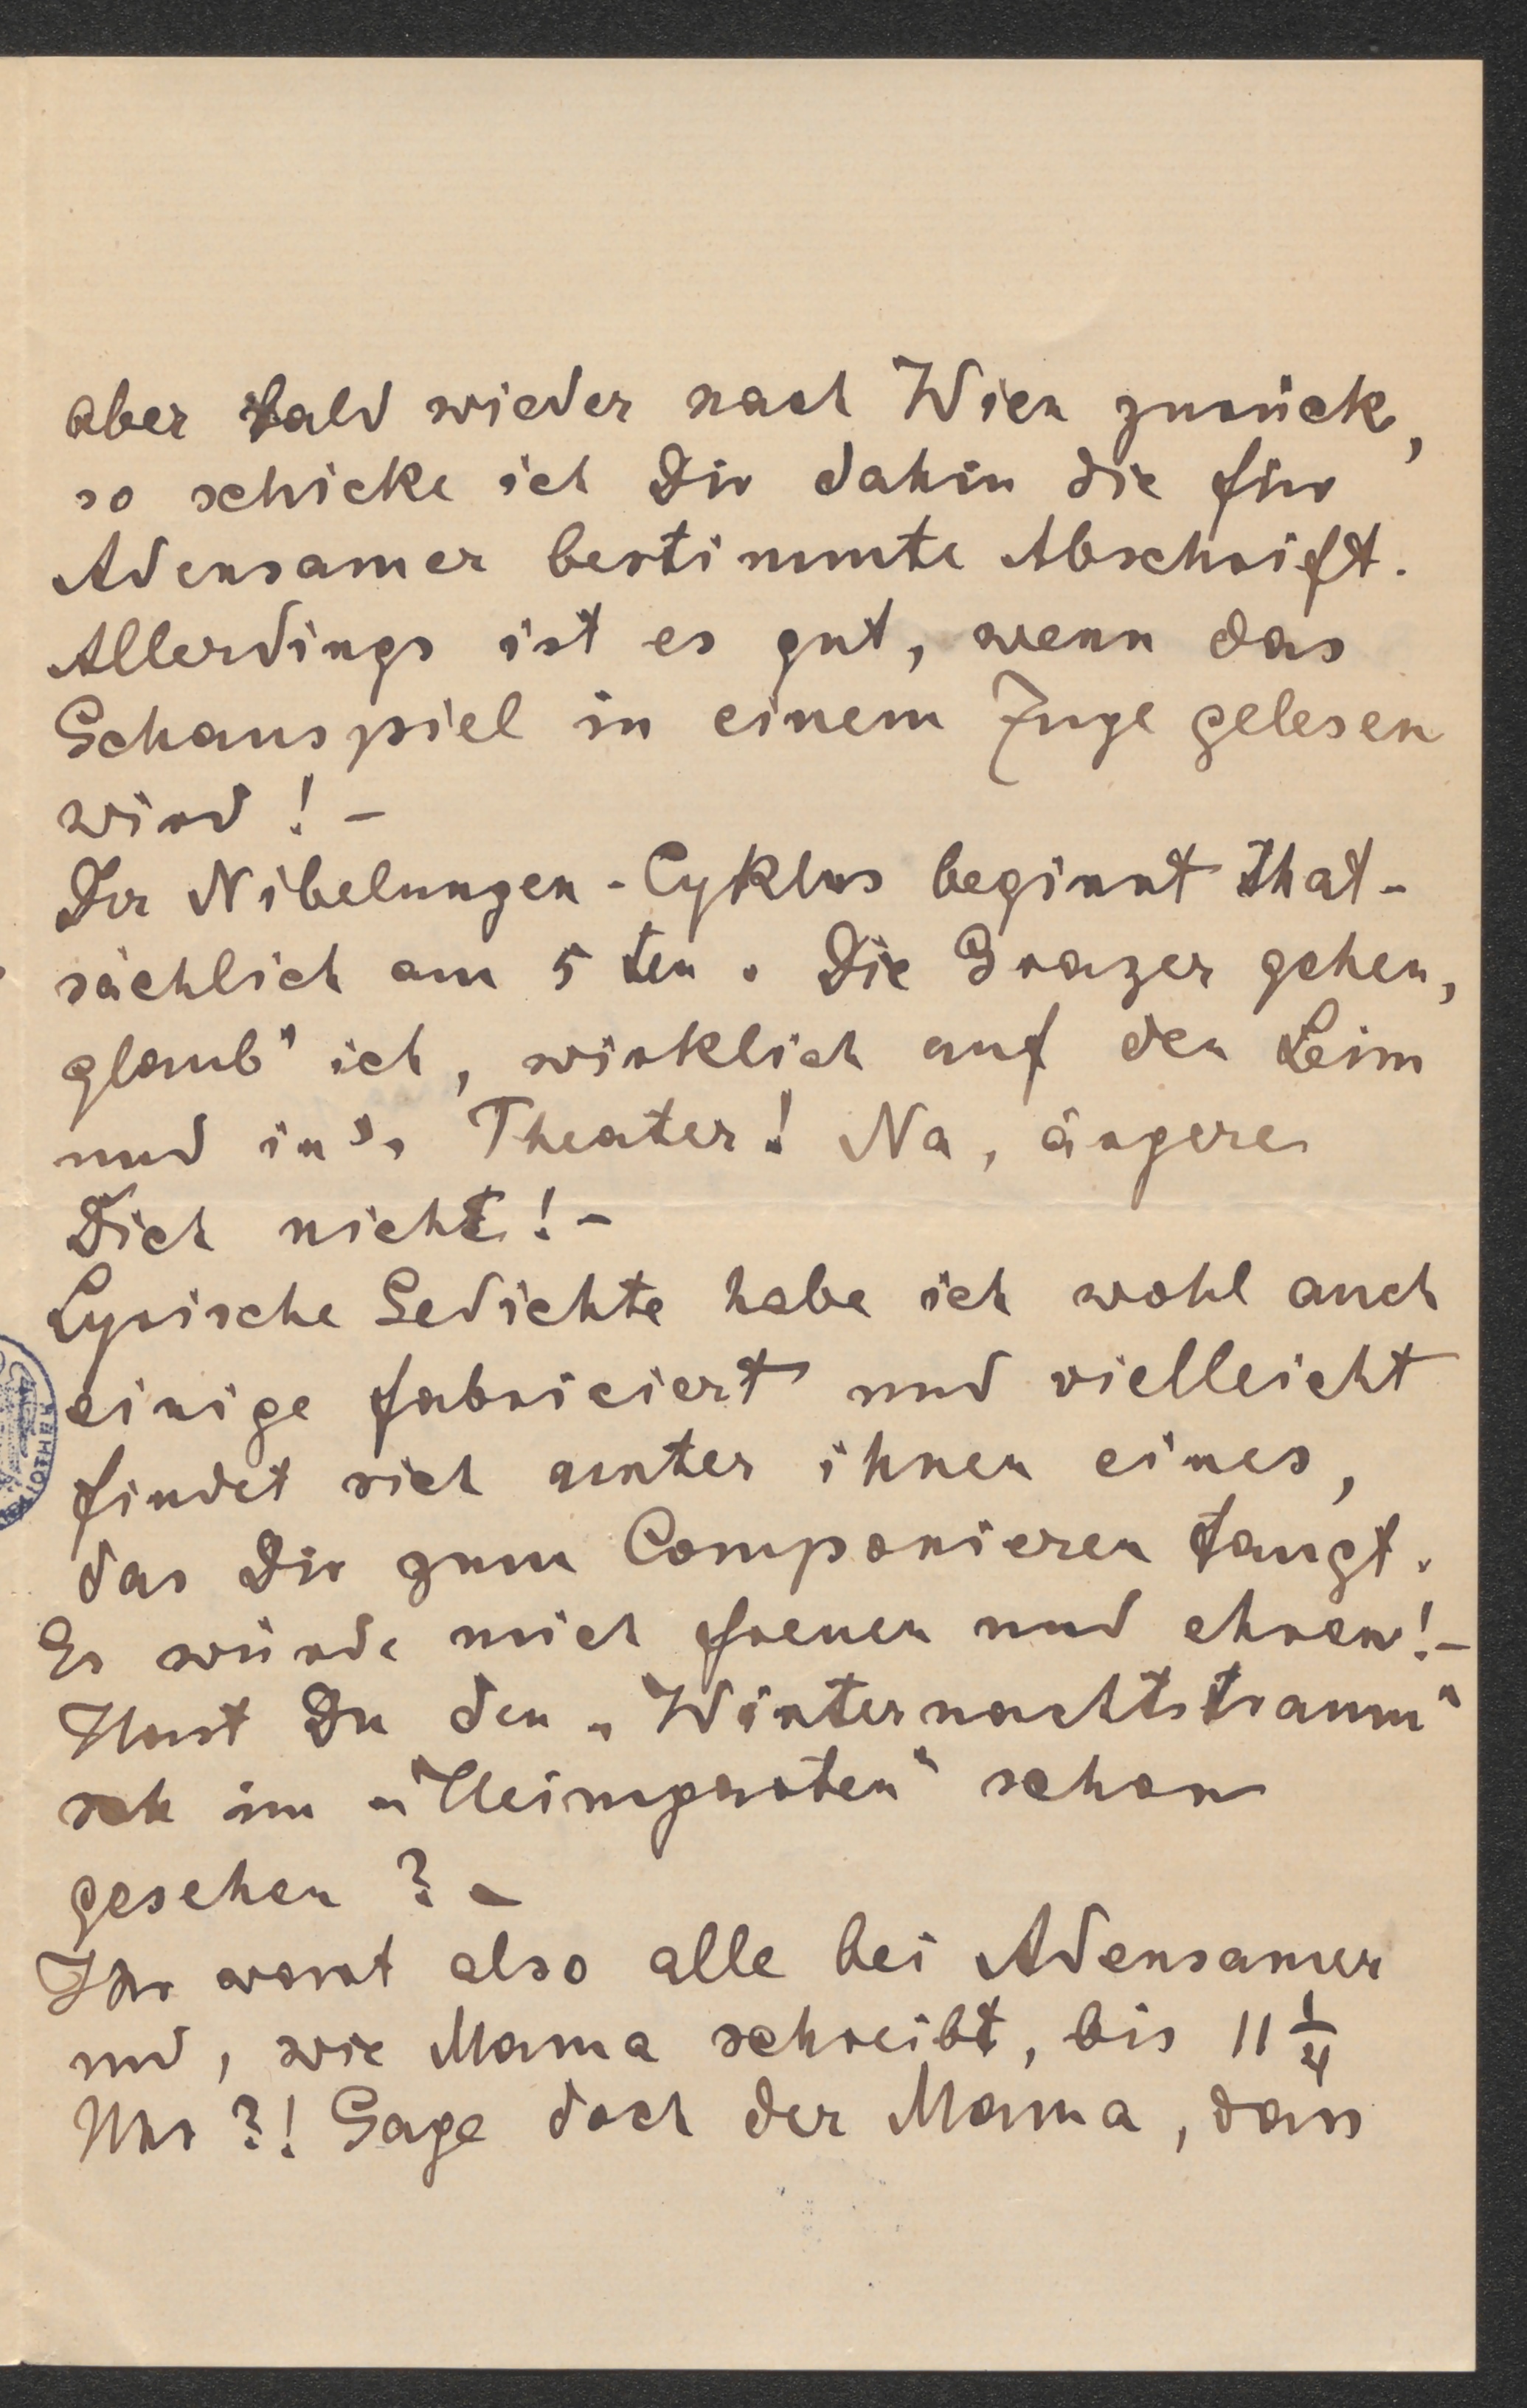 aber bald wieder nach Wien zurück,
so schicke ich Dir dahin die für
Adensamer bestimmte Abschrift.
Allerdings ist es gut, wenn das
Schauspiel in einem Zuge gelesen
wird! –
Der Nibelungen-Cyklus beginnt that-
sächlich am 5ten. Die Grazer gehen,
glaub' ich, wirklich auf den Leim
und in's Theater! Na, ärgere
Dich nicht! –
Lyrische Gedichte habe ich wohl auch
einige fabriciert und vielleicht
findet sich unter ihnen eines,
das Dir zum Componieren taugt.
Es würde mich freuen und ehren! –
Hast Du den „Winternachtstraum“
im „Heimgarten“ schon
gesehen? –
Ihr wart also alle bei Adensamer
und, wie Mama schreibt, bis 11 1/4
Uhr?! Sage doch der Mama, dass